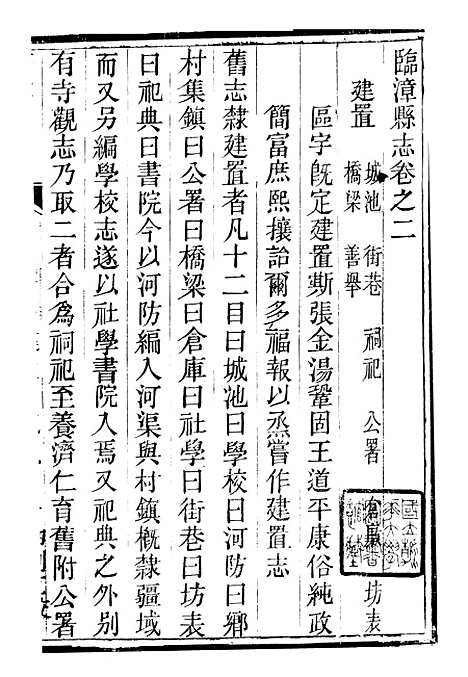 臨漳縣志卷之二
建置 城池 街巷 祠祀 公署 倉廒 坊表
橋梁 善舉
區宇旣定建置斯張金湯鞏固王道平康俗純政
簡富庶熙攘詒爾多福報以烝嘗作建置志
舊志隸建置者凡十二目曰城池曰學校曰河防曰鄉
村集鎮曰公署曰橋梁曰倉庫曰社學曰街巷曰坊表
曰祀典曰書院今以河防編入河渠與村鎮槪隸疆域
而又另編學校志遂以社學書院入焉又祀典之外別
有寺觀志乃取二者合爲祠祀至養濟仁育舊附公署